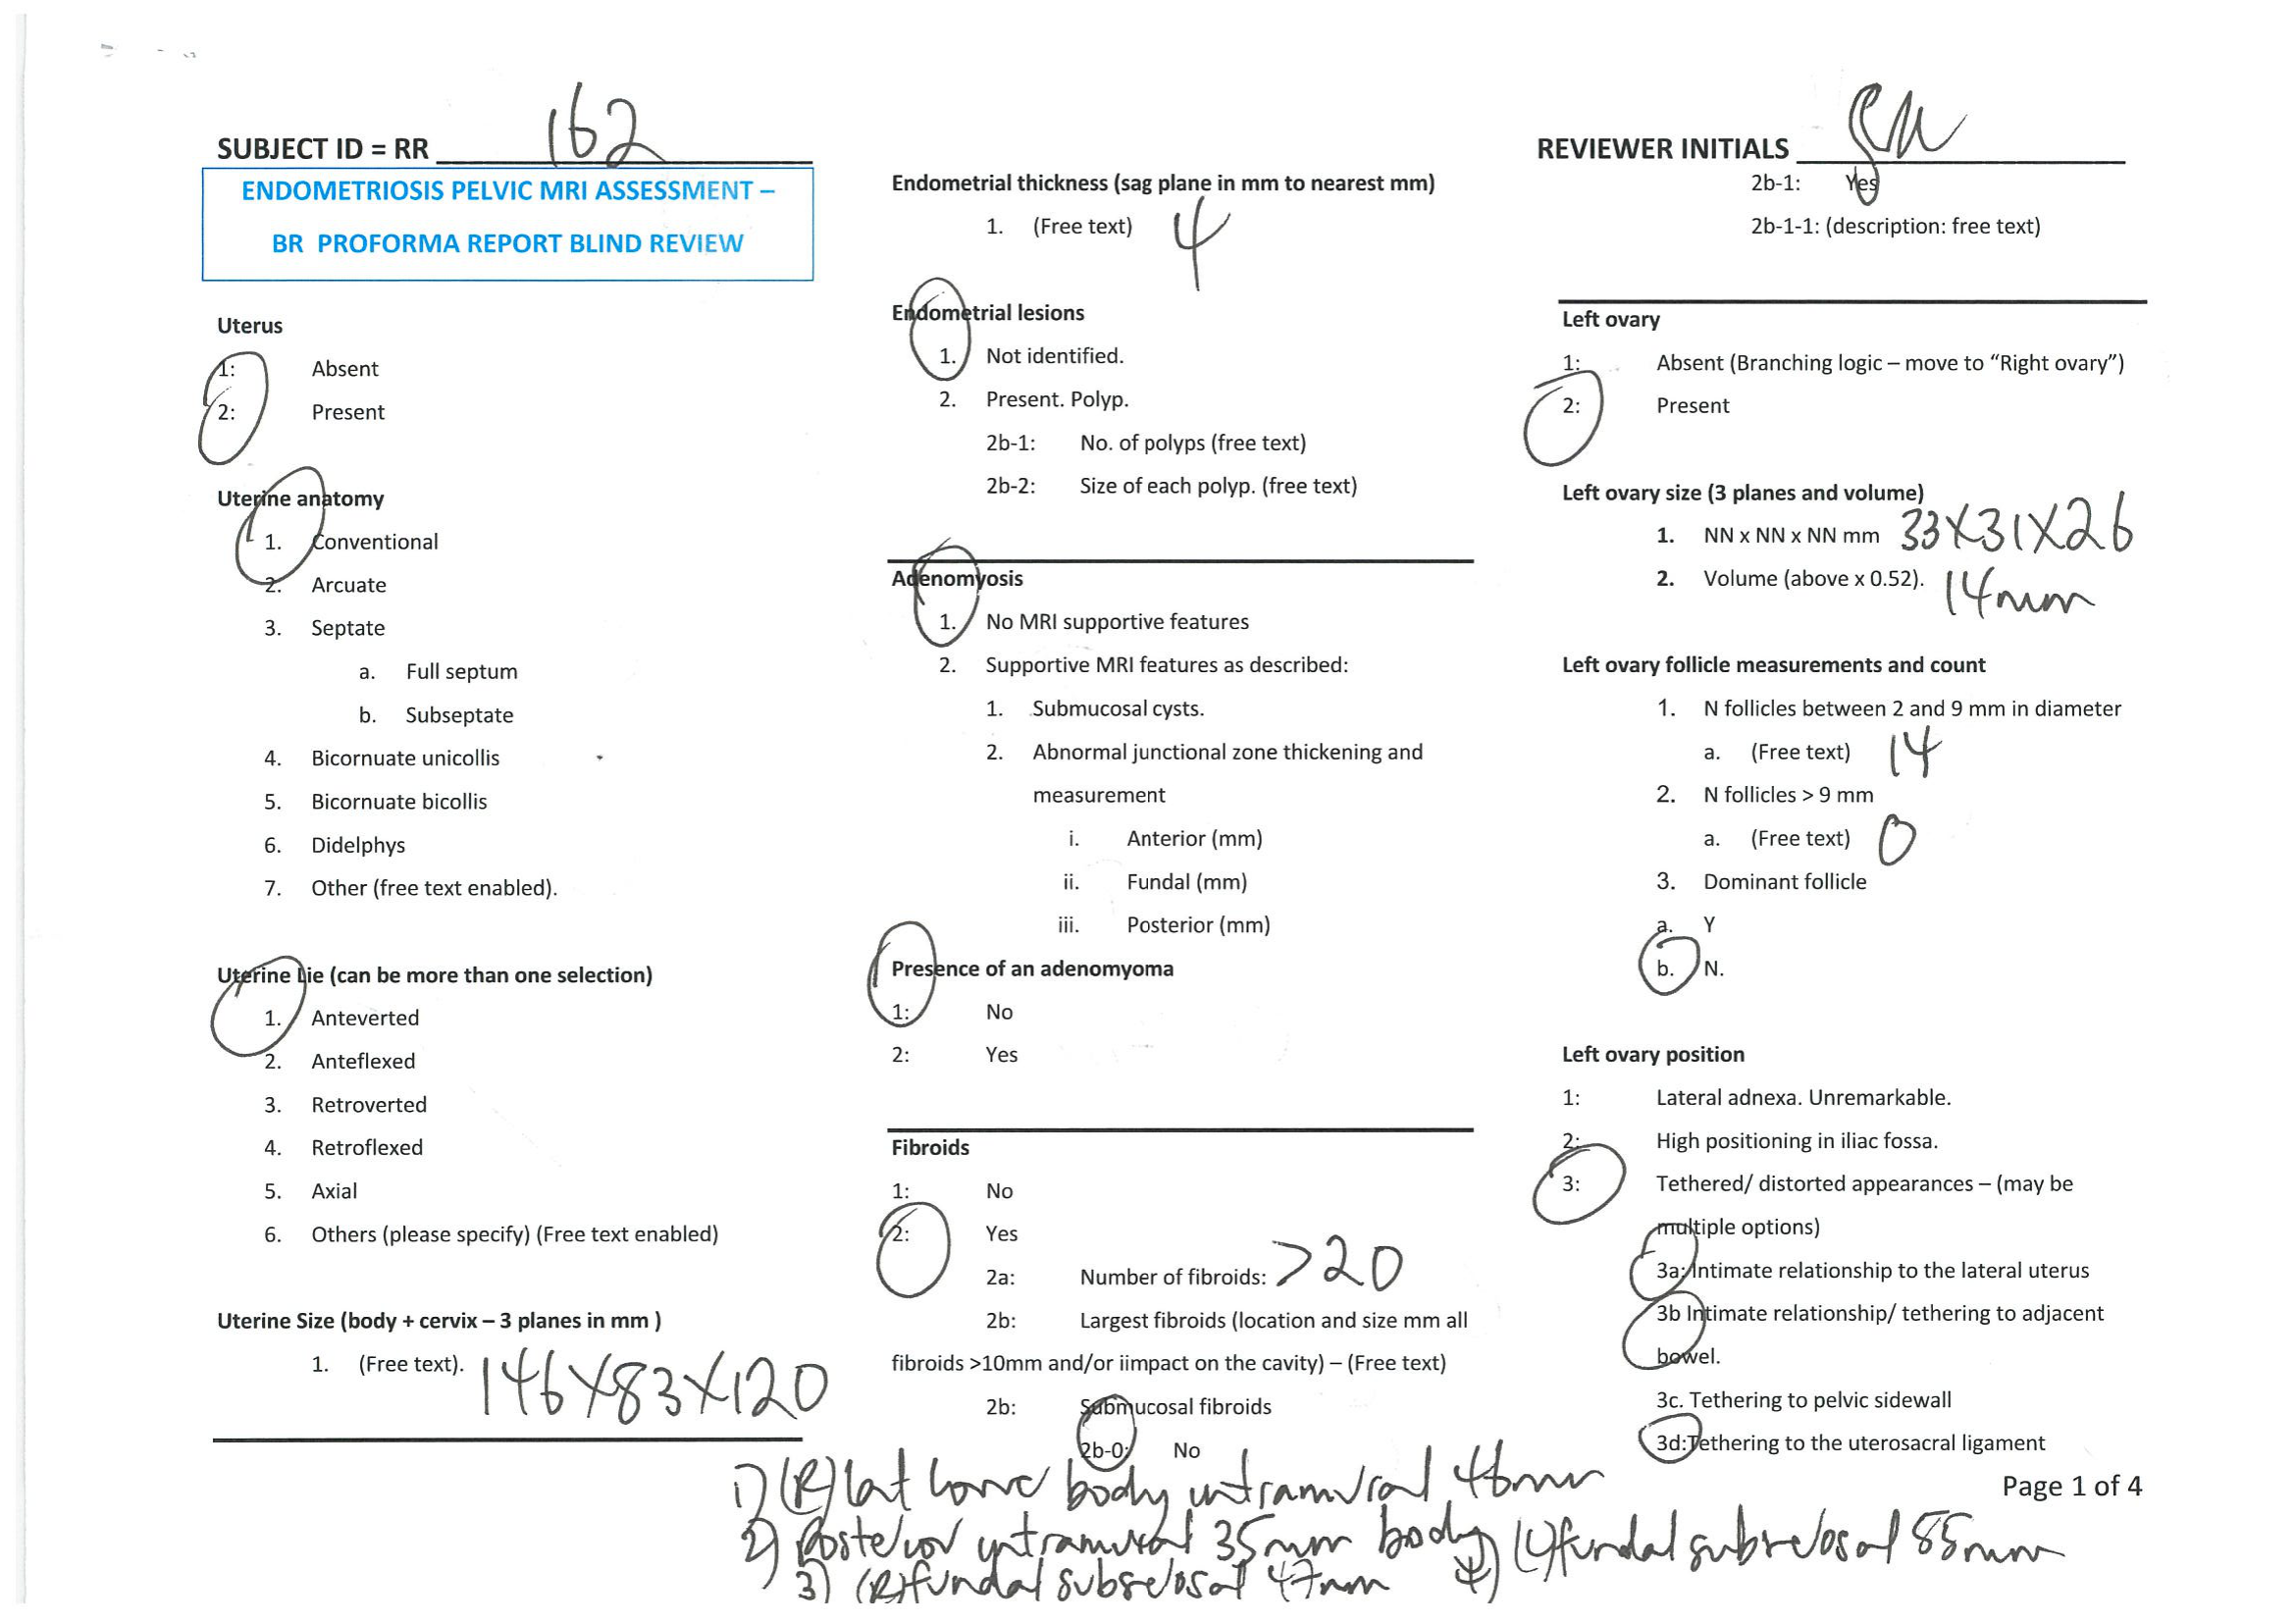 SUBJECT ID = RR 162
ENDOMETRIOSIS PELVIC MRI ASSESSMENT –
BR PROFORMA REPORT BLIND REVIEW
Uterus
1: Absent
2: Present
Uterine anatomy
1. Conventional
2. Arcuate
3. Septate
a. Full septum
b. Subseptate
4. Bicornuate unicollis
5. Bicornuate bicollis
6. Didelphys
7. Other (free text enabled).
Uterine Lie (can be more than one selection)
1. Anteverted
2. Anteflexed
3. Retroverted
4. Retroflexed
5. Axial
6. Others (please specify) (Free text enabled)
Uterine Size (body + cervix – 3 planes in mm )
1. (Free text). 146X83X120
Endometrial thickness (sag plane in mm to nearest mm)
1. (Free text) 4
Endometrial lesions
1. Not identified.
2. Present. Polyp.
2b-1: No. of polyps (free text)
2b-2: Size of each polyp. (free text)
Adenomyosis
1. No MRI supportive features
2. Supportive MRI features as described:
1. Submucosal cysts.
2. Abnormal junctional zone thickening and
measurement
i. Anterior (mm)
ii. Fundal (mm)
iii. Posterior (mm)
Presence of an adenomyoma
1: No
2: Yes
Fibroids
1: No
2: Yes
2a: Number of fibroids: >20
2b: Largest fibroids (location and size mm all
fibroids >10mm and/or iimpact on the cavity) – (Free text)
2b: Submucosal fibroids
2b-0: No
1) (R) lat body intramural 46mm
2) Posterior intramural 35mm body
3) (R) fundal subserosal 47mm
4) (L) fundal subserosal mm
REVIEWER INITIALS
2b-1: Yes
2b-1-1: (description: free text)
Left ovary
1: Absent (Branching logic – move to “Right ovary”)
2: Present
Left ovary size (3 planes and volume)
1. NN x NN x NN mm 33X31X26
2. Volume (above x 0.52). 14mm
Left ovary follicle measurements and count
1. N follicles between 2 and 9 mm in diameter
a. (Free text) 14
2. N follicles > 9 mm
a. (Free text) 0
3. Dominant follicle
a. Y
b. N.
Left ovary position
1: Lateral adnexa. Unremarkable.
2: High positioning in iliac fossa.
3: Tethered/ distorted appearances – (may be
multiple options)
3a: Intimate relationship to the lateral uterus
3b Intimate relationship/ tethering to adjacent
bowel.
3c. Tethering to pelvic sidewall
3d:Tethering to the uterosacral ligament
Page 1 of 4